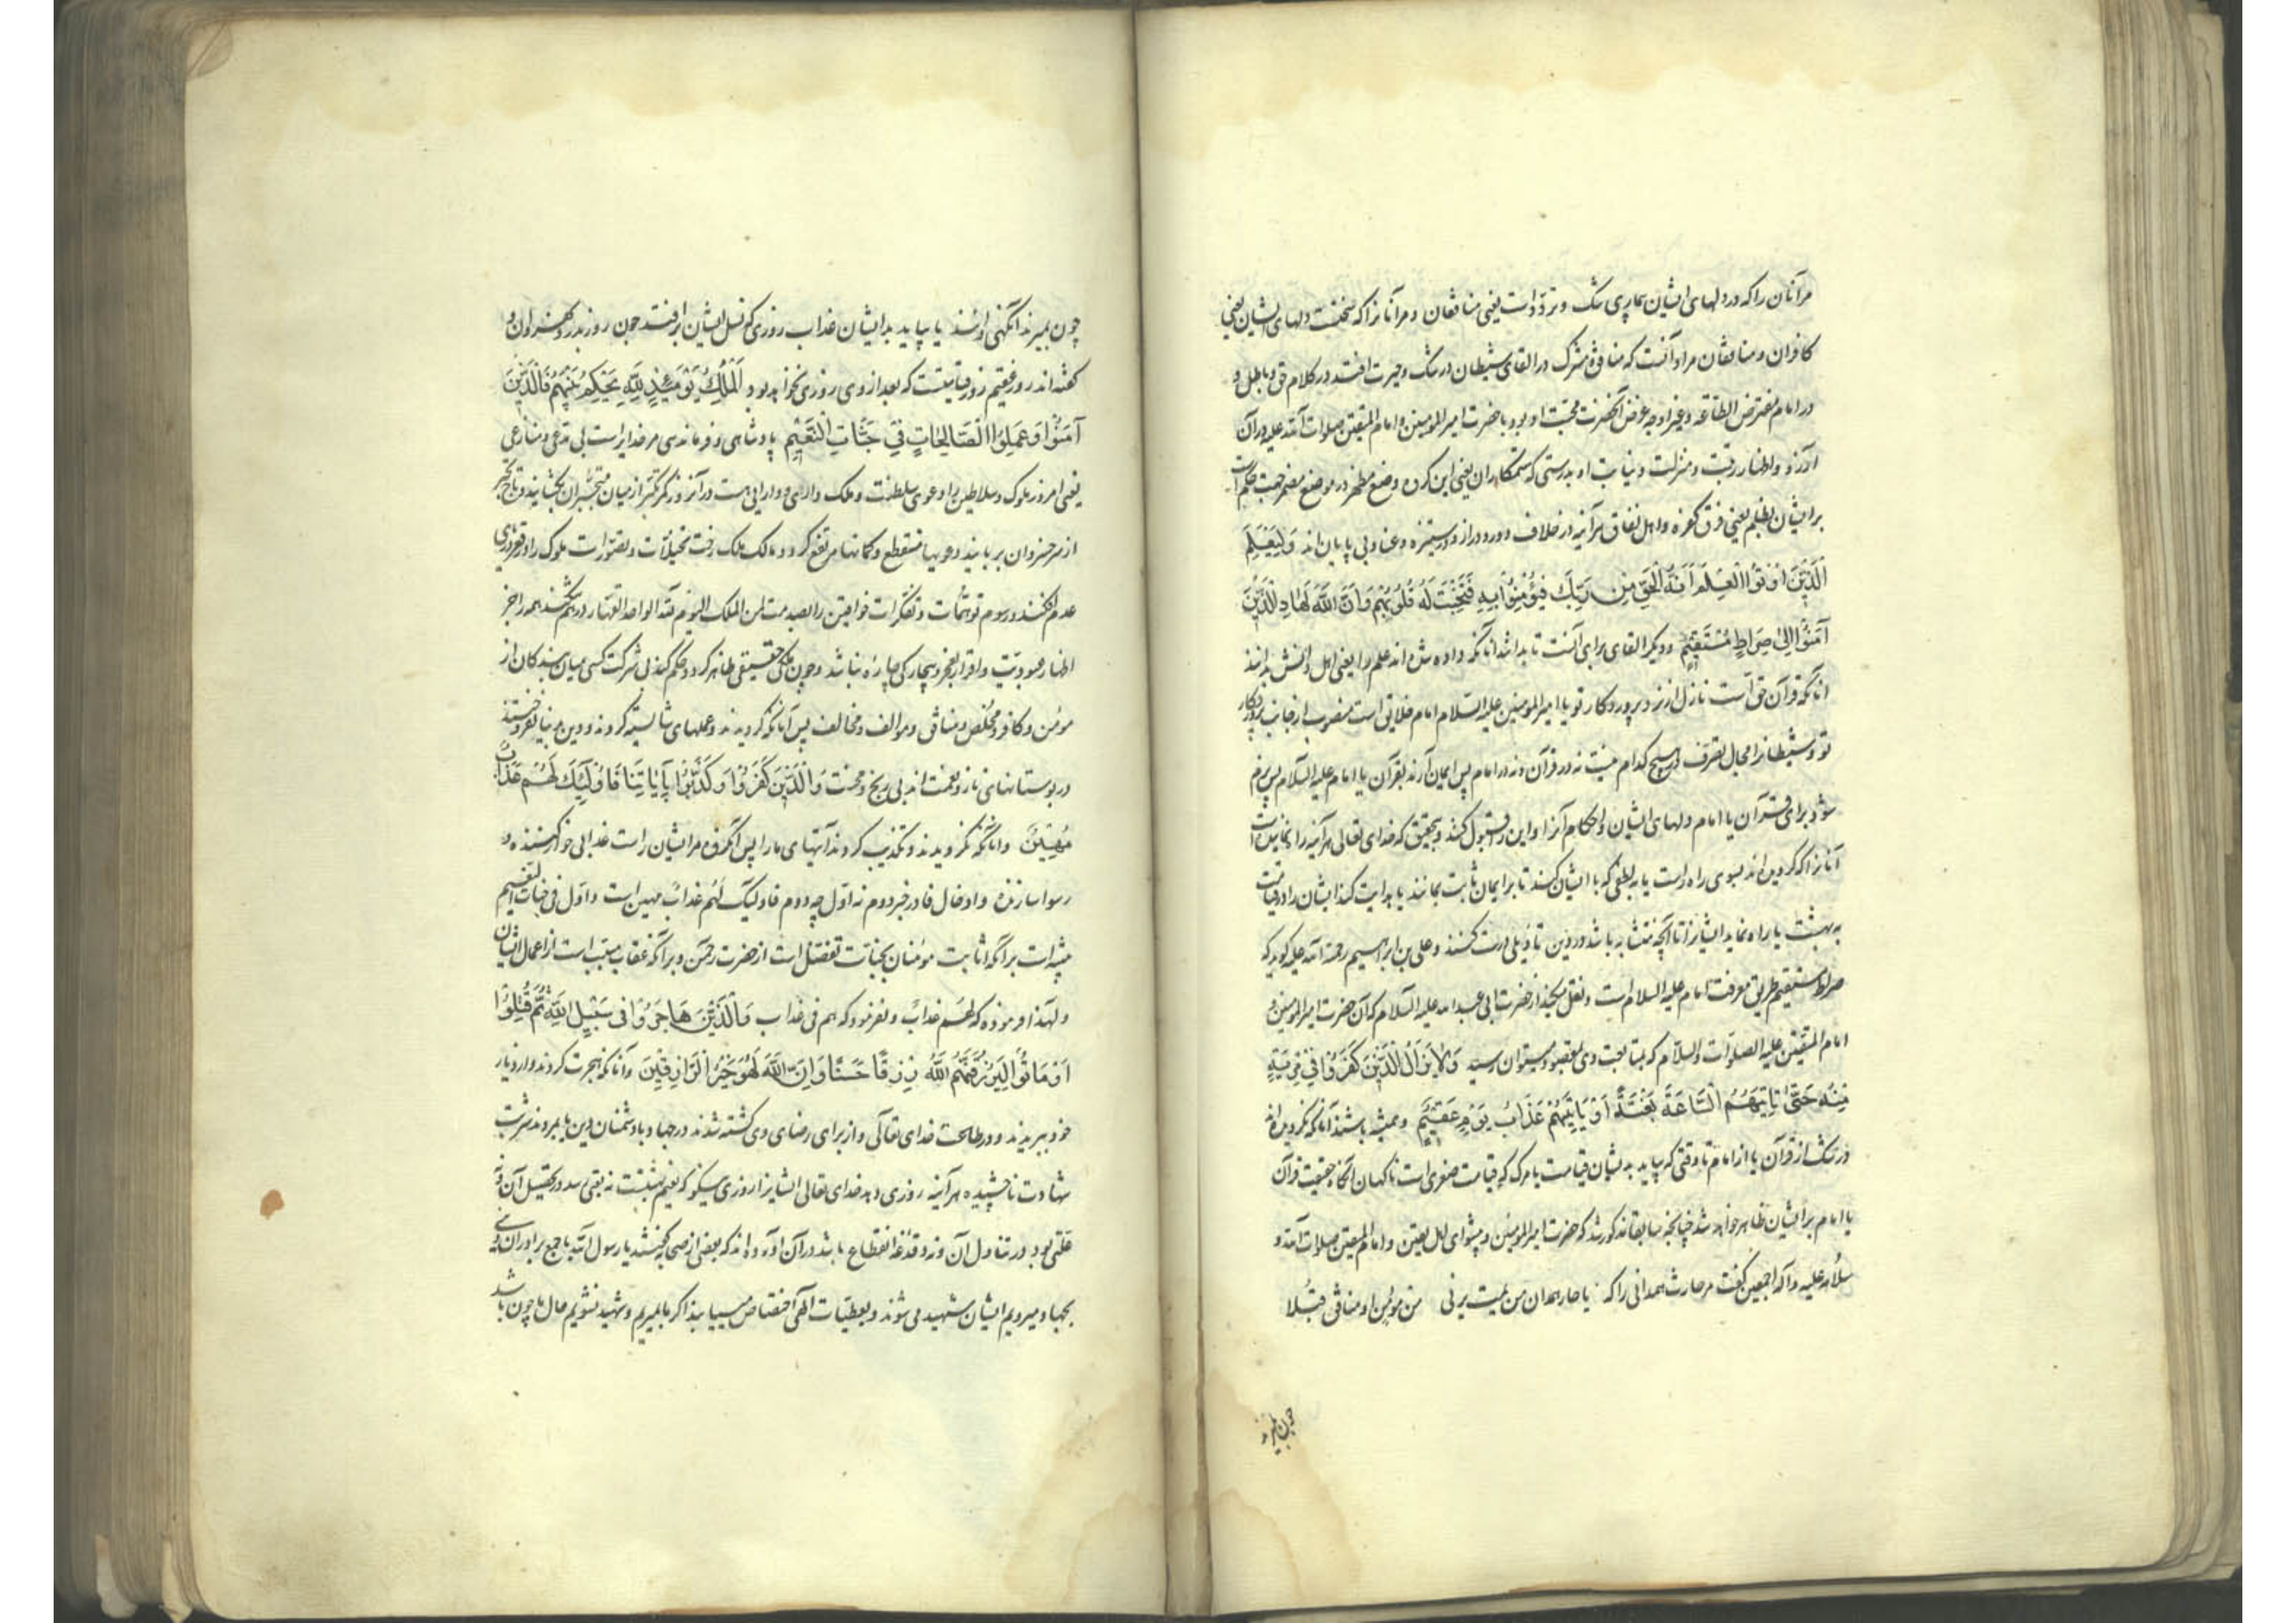 مر آنان را که در دلهای ایشان بیماری شک و تردّد است یعنی منافقان و مر آنانرا که سختست دلهای ایشان یعنی
کافران و منافقان مراد آنست که منافق و مشرک در القای شیطان در شک و حیرت افتند در کلام حق و باطل و
در امام مفترض الطاعه و غیر او چه غرض آنحضرت محبت او بود با حضرت امیرالمومنین و امام المتقین صلوات الله علیه در آن
آرزو و اظهار رتبت و منزلت و نیابت او بدرستی که ستمکاران یعنی این کروه وضع مظهر در موضع مضمر جهت حکم است
بر ایشان بظلم یعنی فرق کفره و اهل نفاق هر آینه در خلاف دور و دراز و در ستیزه و عناد بی پایان اند وَلِيَعْلَمَ
الَّذِينَ اُوتُوا الْعِلْمَ اَنَّهُ الْحَقُّ مِن رَبِّكَ فَيُؤْمِنُوا بِهِ فَتُخْبِتَ لَهُ قُلُوبُهُمْ وَاَنَّ اللَّهَ لَهَادِ الَّذِينَ
آمَنُوا اِلَىٰ صِرَاطٍ مُسْتَقِيمٍ و دیکر القای برای آنست تا بدانند آنانکه داده شده اند علم را یعنی اهل دانش بدانند
انانکه قرآن حق است نازل از نزد پروردکار تو یا امیرالمومنین علیه السلام امام خلایق است منصوب از جانب پروردکار
تو و شیطانرا مجال تصرف در هیچ کدام نیست نه در قرآن و نه در امام پس ایمان آرند بقرآن یا امام علیه السلام پس نرم
شود برای قرآن یا امام دلهای ایشان و احکام آنرا و این را قبول کنند و بتحقیق که خدای تعالی هر آینه راه نماینده است
آنانرا که کرویده اند بسوی راه راست یا به لطفی که با ایشان کند تا بر ایمان ثابت بمانند یا هدایت کند ایشان را در قیامت
به بهشت یا راه نماید ایشانرا تا آنچه متشابه باشد در دین تاویلی درست کنند و علی بن ابراهیم رحمة الله علیه کوید که
صراط مستقیم طریق معرفت امام علیه السلام است و نقل میکند از حضرت ابی عبد الله علیه السلام که آن حضرت امیرالمومنین و
امام المتقین علیه الصلوات والسلام که بمتابعت وی بمقصود میتوان رسید وَلَا يَزَالُ الَّذِينَ كَفَرُوا فِي مِرْيَةٍ
مِنْهُ حَتَّىٰ تَاْتِيَهُمُ السَّاعَةُ بَغْتَةً اَوْ يَاْتِيَهُمْ عَذَابُ يَوْمٍ عَقِيمٍ و همیشه باشند آنانکه نکرویده اند
در شک از قرآن یا از امام تا وقتی که بیاید بدیشان قیامت یا مرک که قیامت صغری است ناکهان آنکاه حقیقت قرآن
یا امام بر ایشان ظاهر خواهد شد چنانچه سابقا مذکور شد که حضرت امیرالمومنین و پیشوای اهل یقین و امام المتقین صلوات الله و
سلامه علیه و آله اجمعین کفت مر حارث همدانی را که یا حار همدان من یمت یرنی من مومن او منافق قبلا
چون بمیرند
چون بمیرند آنکهی اولشند یا بیاید بدایشان عذاب روزی که نسل ایشان برافتد چون روز بدر و کفته اولاد
کفته اند روز عقیم روز قیامتست که بعد از وی روزی نخواهد بود اَلْمُلْكُ يَوْمَئِذٍ لِلَّهِ يَحْكُمُ بَيْنَهُمْ فَالَّذِينَ
آمَنُوا وَعَمِلُوا الصَّالِحَاتِ فِي جَنَّاتِ النَّعِيمِ پادشاهی و فرماندهی مر خدایراست بی مدعی و منازعی
یعنی امروز ملوک و سلاطین را دعوی سلطنت و ملک داری و دارایی هست در آنروز کمر تکبر از میان متجبران بکشایند و تاج تجبر
از سر خسروان بربایند دعویها منقطع و کمانها مرتفع کردد و مالک ملک رفت تخیلات و تصورات ملوک را در قعر دریای
عدم افکند و رسوم توهمات و تفکرات خواقین را بصدمت لمن الملک الیوم لله الواحد القهار در هم شکند همه را جز
اظهار عبودیت و اقرار بعجز و بیچارکی چاره نباشد و چون ملک حقیقی ظاهر کردد حکم کند بی شرکت کسی میان بندکان از
مومن و کافر و مخلص و منافق و موالف و مخالف پس آنانکه کرویدند و عملهای شایسته کردند و دین بدنیا نفروختند
در بوستانهای ناز و نعمت اند بی رنج و محنت وَالَّذِينَ كَفَرُوا وَكَذَّبُوا بِآيَاتِنَا فَاُولٰئِكَ لَهُمْ عَذَابٌ
مُهِينٌ و آنانکه نکرویدند و تکذیب کردند آیتهای ما را پس آنکروه مر ایشان راست عذابی خوار کننده و
رسوا سازنده و ادخال فا در خبر دوم نه اول چه دوم فاولئک لهم عذاب مهین است و اول فی جنات النعیم
منبه است بر آنکه اثابت مومنان بجنات تفضل است از حضرت رحمن و بر آنکه عقاب مسبب است از اعمال ایشان
و لهذا فرموده که لهم عذاب و نفرمود که هم فی عذاب وَالَّذِينَ هَاجَرُوا فِي سَبِيلِ اللَّهِ ثُمَّ قُتِلُوا
اَوْ مَاتُوا لَيَرْزُقَنَّهُمُ اللَّهُ رِزْقًا حَسَنًا وَاِنَّ اللَّهَ لَهُوَ خَيْرُ الرَّازِقِينَ و آنانکه هجرت کردند و از دیار
خود ببریدند و در طاعت خدای تعالی و از برای رضای وی کشته شدند در جهاد با دشمنان دین یا بمردند شربت
شهادت ناچشیده هر آینه روزی دهد خدای تعالی ایشانرا روزی نیکو که نعیم بهشتست نه تعبی رسد در تحصیل آن و نه
علتی بود در تناول آن و نه دغدغه انقطاع باشد در آن آورده اند که بعضی از صحابه کفتند یا رسول الله با جمع برادران دینی
بجهاد میرویم ایشان شهید می شوند و بعطیات الهی اختصاص مییابند اکر ما بمیریم و شهید نشویم حال ما چون باشد